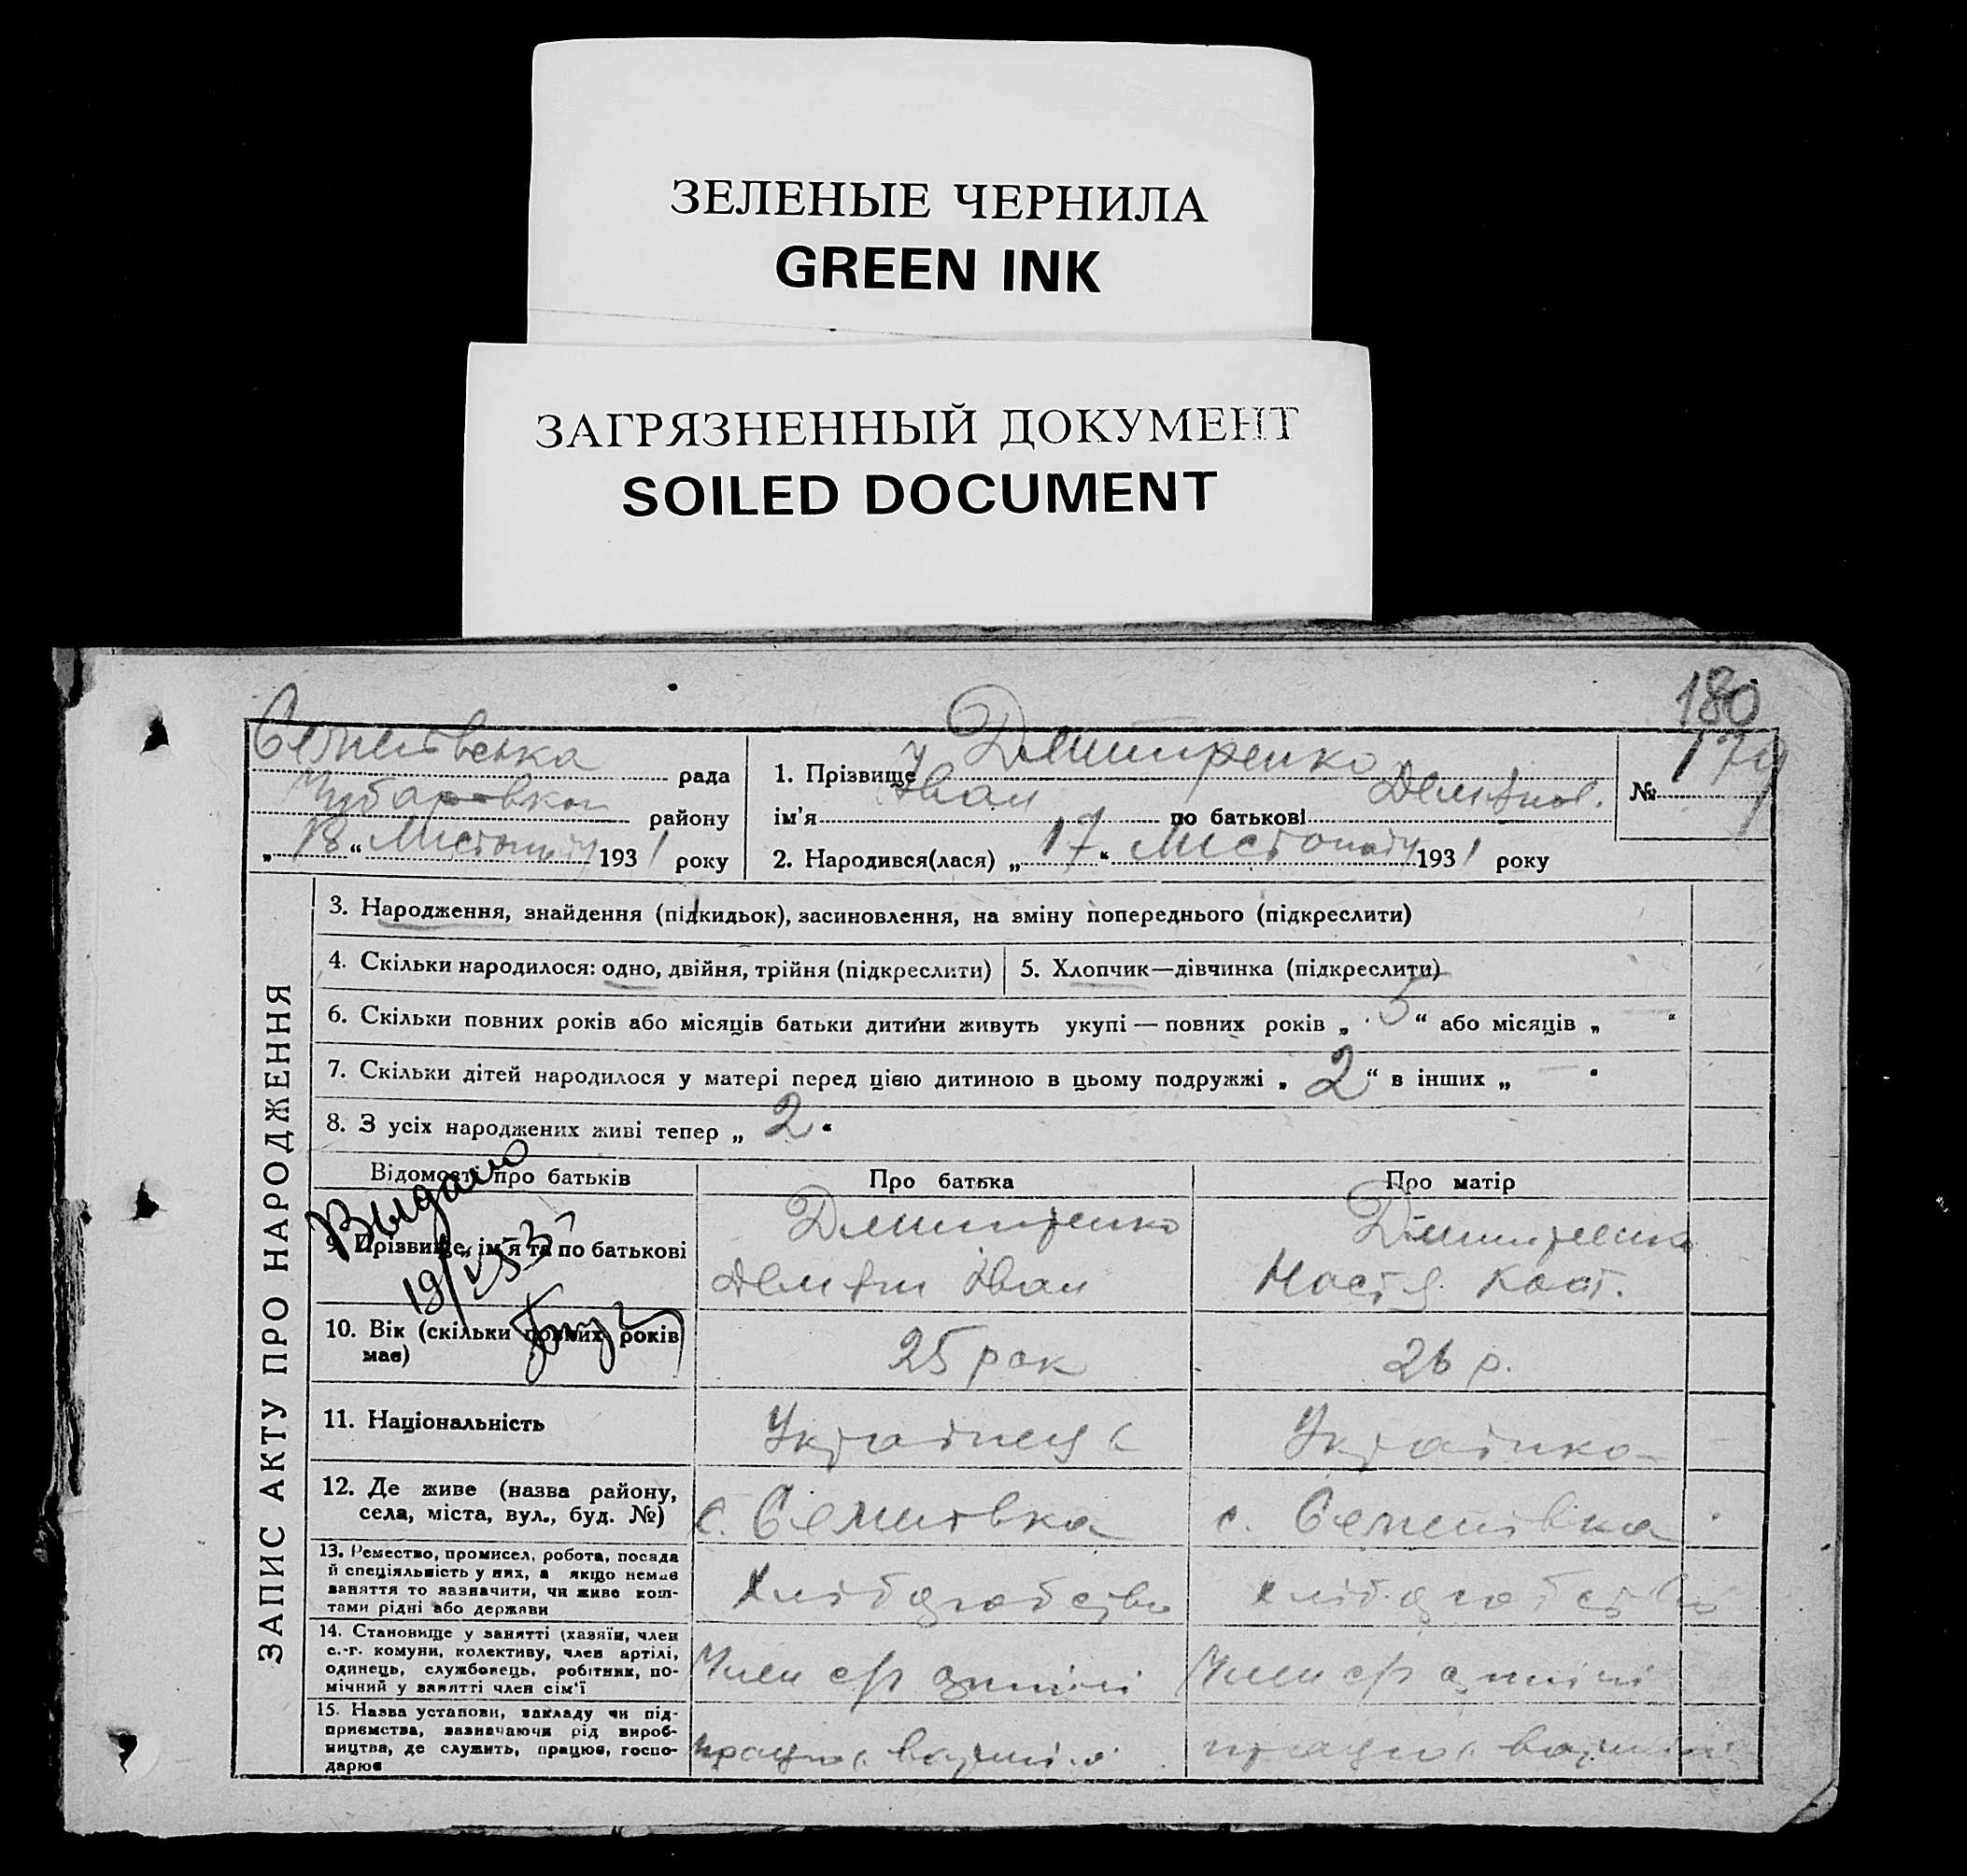 ЗЕЛЕНЫЕ ЧЕРНИЛА
GREEN INK
ЗАГРЯЗНЕННЫЙ ДОКУМЕНТ
SOILED DOCUMENT
180
рада
району
„ 18 “ 1931 року
1. Прізвище Дмитренко
ім'я Іван по батькові
2. Народився(лася) „ 17 “ 1931 року
№ 179
ЗАПИС АКТУ ПРО НАРОДЖЕННЯ
3. Народження, знайдення (підкидьок), засиновлення, на зміну попереднього (підкреслити)
4. Скільки народилося: одно, двійня, трійня (підкреслити)
5. Хлопчик—дівчинка (підкреслити)
6. Скільки повних років або місяців батьки дитини живуть укупі — повних років „ 5 “ або місяців „ — “
7. Скільки дітей народилося у матері перед цією дитиною в цьому подружжі „ 2 “ в інших „ — “
8. З усіх народжених живі тепер „ 2 “
Відомості про батьків
Про батька
Про матір
Выдано
9. Прізвище, ім'я та по батькові
Дмитренко
Іван
Дмитренко
Настя Кост.
10. Вік (скільки повних років
має)
25 рок
26 р.
11. Національність
Українець
Українка
12. Де живе (назва району,
села, міста, вул., буд. №)
с. Семенівка
с. Семенівка
13. Ремество, промисел, робота, посада
й спеціяльність у них, а якщо немає
заняття то зазначити, чи живе кош-
тами рідні або держави
14. Становище у занятті (хазяїн, член
с.-г. комуни, колективу, член артілі,
одинець, службовець, робітник, по-
мічний у занятті член сім'ї
Член с/г артілі
Член с/г артілі
15. Назва установи, закладу чи під-
приємства, зазначаючи рід вироб-
ництва, де служить, працює, госпо-
дарює
працює в артілі
працює в артілі